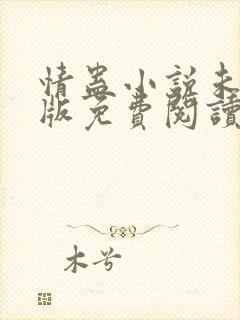 情蛊小說未
版免費閱讀
木兮